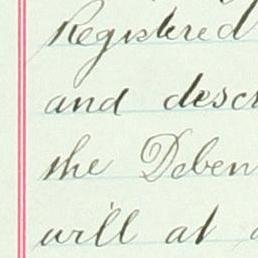 Registered
and descr
the Deben
will at